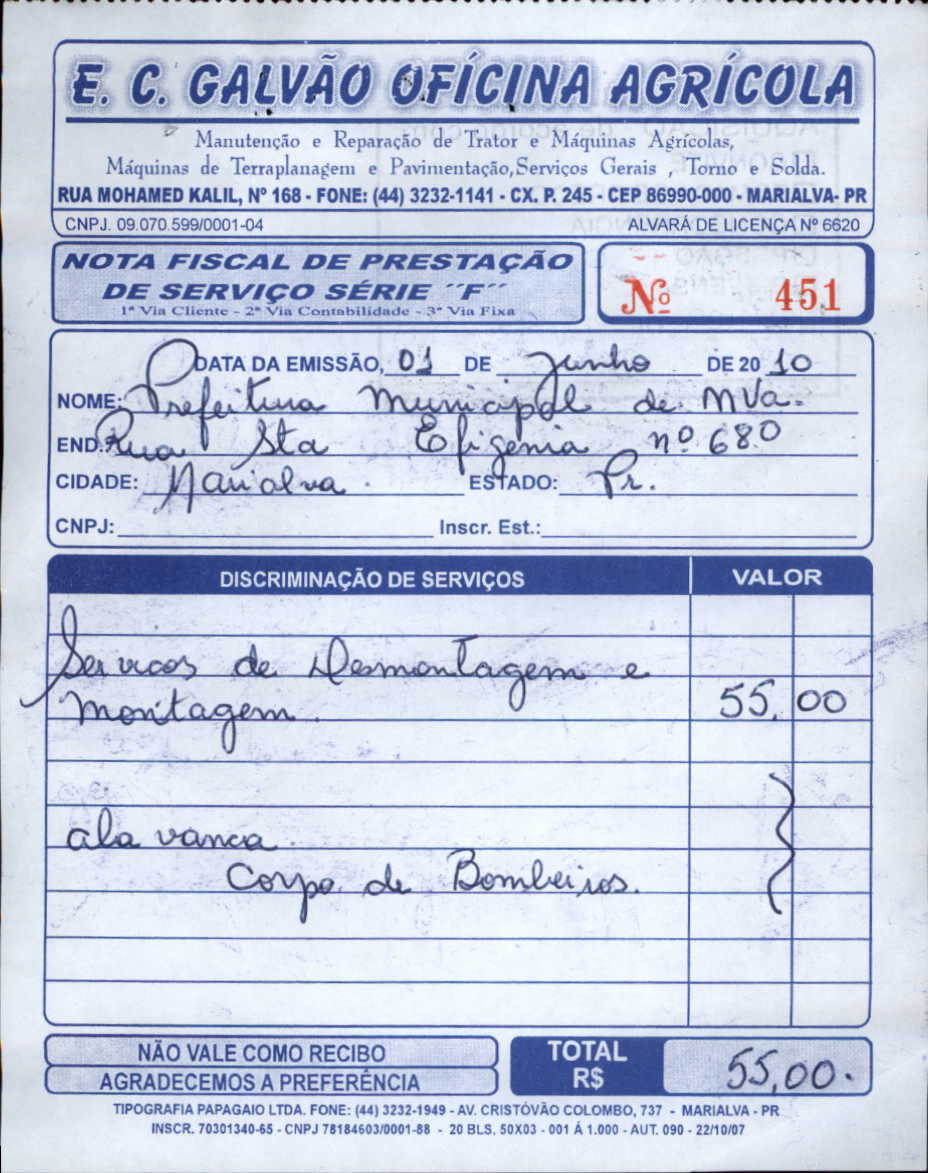 E. C. GALVÃO OFÍCINA AGRÍCOLA
Manutenção e Reparação de Trator e Máquinas Agrícolas,
Máquinas de Terraplanagem e Pavimentação,Serviços Gerais , Torno e Solda.
RUA MOHAMED KALIL, Nº 168 - FONE: (44) 3232-1141 - CX. P. 245 - CEP 86990-000 - MARIALVA- PR
CNPJ. 09.070.599/0001-04 ALVARÁ DE LICENÇA Nº 6620
NOTA FISCAL DE PRESTAÇÃO
DE SERVIÇO SÉRIE ´´F´´
1ª Via Cliente - 2ª Via Contabilidade - 3ª Via Fixa
Nº 451
DATA DA EMISSÃO, 01 DE Junho DE 20 10
NOME: Prefeitura Municipal de MVa.
END. Rua Sta Efigenia nº 680
CIDADE: Marialva. ESTADO: Pr.
CNPJ: Inscr. Est.:
DISCRIMINAÇÃO DE SERVIÇOS VALOR
Servicos de Desmontagem e
montagem. 55,00
ala vanca.
Corpo de Bombeiros.
NÃO VALE COMO RECIBO
AGRADECEMOS A PREFERÊNCIA
TOTAL
R$ 55,00.
TIPOGRAFIA PAPAGAIO LTDA. FONE: (44) 3232-1949 - AV. CRISTÓVÃO COLOMBO, 737 - MARIALVA - PR
INSCR. 70301340-65 - CNPJ 78184603/0001-88 - 20 BLS. 50X03 - 001 Á 1.000 - AUT. 090 - 22/10/07